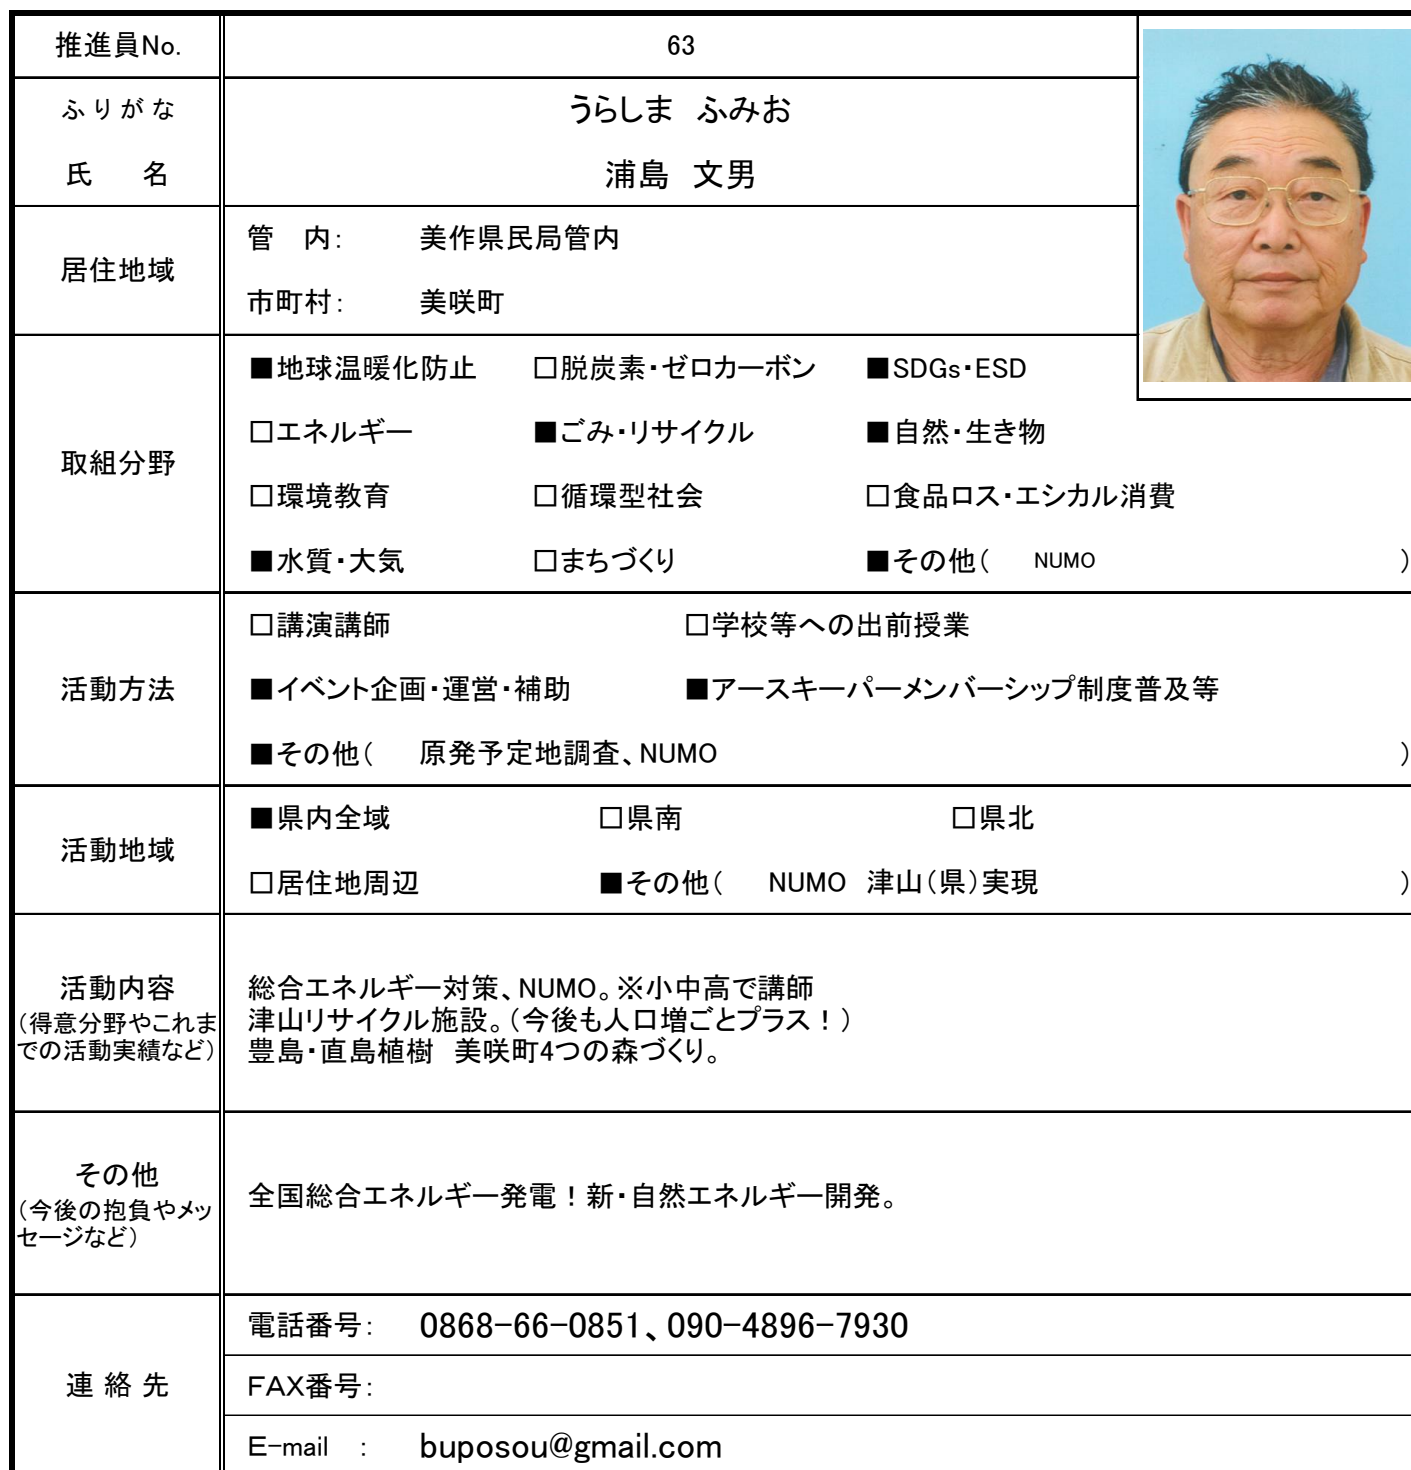 推進員No. 63
ふりがな うらしま ふみお
氏 名 浦島 文男
居住地域
管 内: 美作県民局管内
市町村: 美咲町
取組分野
■地球温暖化防止 □脱炭素・ゼロカーボン ■SDGs・ESD
□エネルギー ■ごみ・リサイクル ■自然・生き物
□環境教育 □循環型社会 □食品ロス・エシカル消費
■水質・大気 □まちづくり ■その他( NUMO )
活動方法
□講演講師 □学校等への出前授業
■イベント企画・運営・補助 ■アースキーパーメンバーシップ制度普及等
■その他( 原発予定地調査、NUMO )
活動地域
■県内全域 □県南 □県北
□居住地周辺 ■その他( NUMO 津山(県)実現 )
活動内容
(得意分野やこれま
での活動実績など)
総合エネルギー対策、NUMO。※小中高で講師
津山リサイクル施設。(今後も人口増ごとプラス!)
豊島・直島植樹 美咲町4つの森づくり。
その他
(今後の抱負やメッ
セージなど)
全国総合エネルギー発電!新・自然エネルギー開発。
連絡先
電話番号: 0868-66-0851、090-4896-7930
FAX番号:
E-mail : buposou@gmail.com